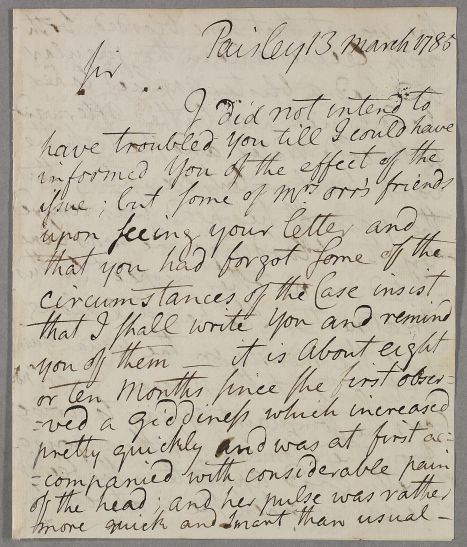 Paisley 13 March 1785
Sir
I did not intend to
have troubled you till I could have
informed you of the effect of the
issue; but some of Mrs Orr's friends
upon seeing your letter and
that you had forgot some of the
circumstances of the Case insist
that I shall write you and remind
you of them — it is about eight
or ten Months since she first obser-
=ved a giddiness which increased
pretty quickly and was at first ac-
=companied with considerable pain
of the head; and her pulse was rather
more quick and smart than usual —